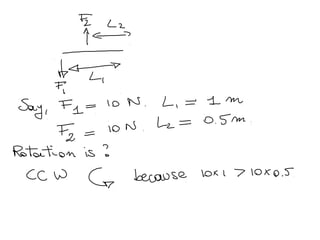 F2 L2
L1
F1
Say, F1 = 10 N. L1 = 1 m
F2 = 10N. L2 = 0.5m.
Rotation is?
CCW because 10x1 > 10x0.5